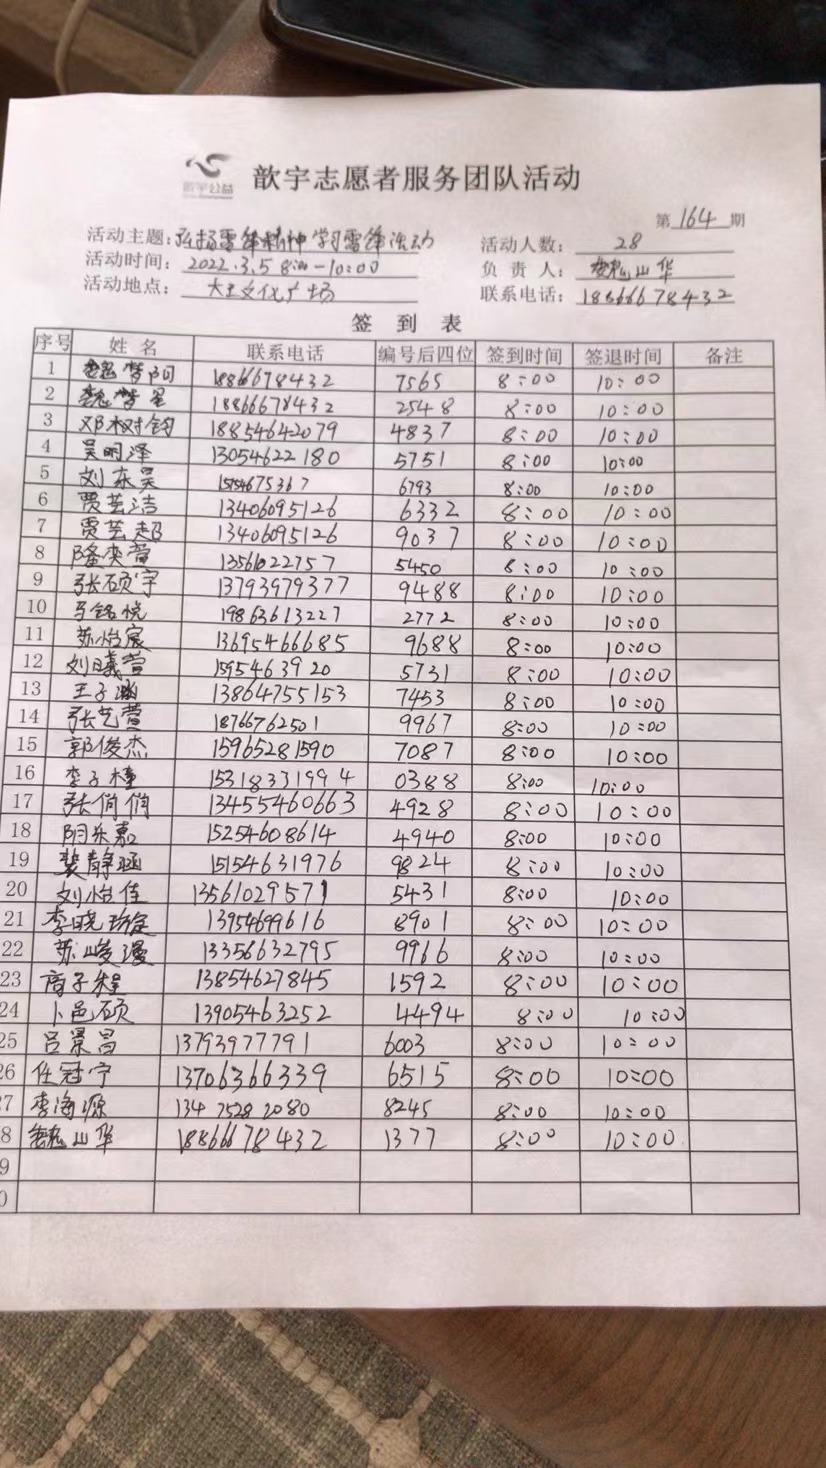 歆宇公益
歆宇志愿者服务团队活动
第 164 期
活动主题: 弘扬雷锋精神学习雷锋活动
活动人数: 28
活动时间: 2022.3.5 8:00-10:00
负责人: 魏山华
活动地点: 大王文化广场
联系电话: 18866678432
签到表
序号 姓名 联系电话 编号后四位 签到时间 签退时间 备注
1 魏梦阳 18866678432 7565 8:00 10:00
2 魏梦星 18866678432 2548 8:00 10:00
3 邓树钧 18854642079 4837 8:00 10:00
4 吴明泽 13054622180 5751 8:00 10:00
5 刘东昊 15154675367 6793 8:00 10:00
6 贾芸洁 13406095126 6332 8:00 10:00
7 贾芸超 13406095126 9037 8:00 10:00
8 隆奕萱 13561022757 5450 8:00 10:00
9 张硕宇 13793979377 9488 8:00 10:00
10 马铭悦 19863613227 2772 8:00 10:00
11 苏怡宸 13695466685 9688 8:00 10:00
12 刘曦萱 1595463920 5731 8:00 10:00
13 王子涵 13864755153 7453 8:00 10:00
14 张艺萱 18766762501 9967 8:00 10:00
15 郭俊杰 15965281590 7087 8:00 10:00
16 李子橦 15318331994 0388 8:00 10:00
17 张俏俏 13455460663 4928 8:00 10:00
18 阴乐嘉 15254608614 4940 8:00 10:00
19 裴静涵 15154631976 9824 8:00 10:00
20 刘怡佳 13561029571 5431 8:00 10:00
21 李晓 13954699616 8901 8:00 10:00
22 苏峻漫 13356632795 9966 8:00 10:00
23 商子程 13854627845 1592 8:00 10:00
24 卜邑硕 13905463252 4494 8:00 10:00
25 吕景昌 13793977791 6003 8:00 10:00
26 任冠宁 13706366339 6515 8:00 10:00
7 李海源 134 7528 2080 8245 8:00 10:00
8 魏山华 18866678432 1377 8:00 10:00
9
0